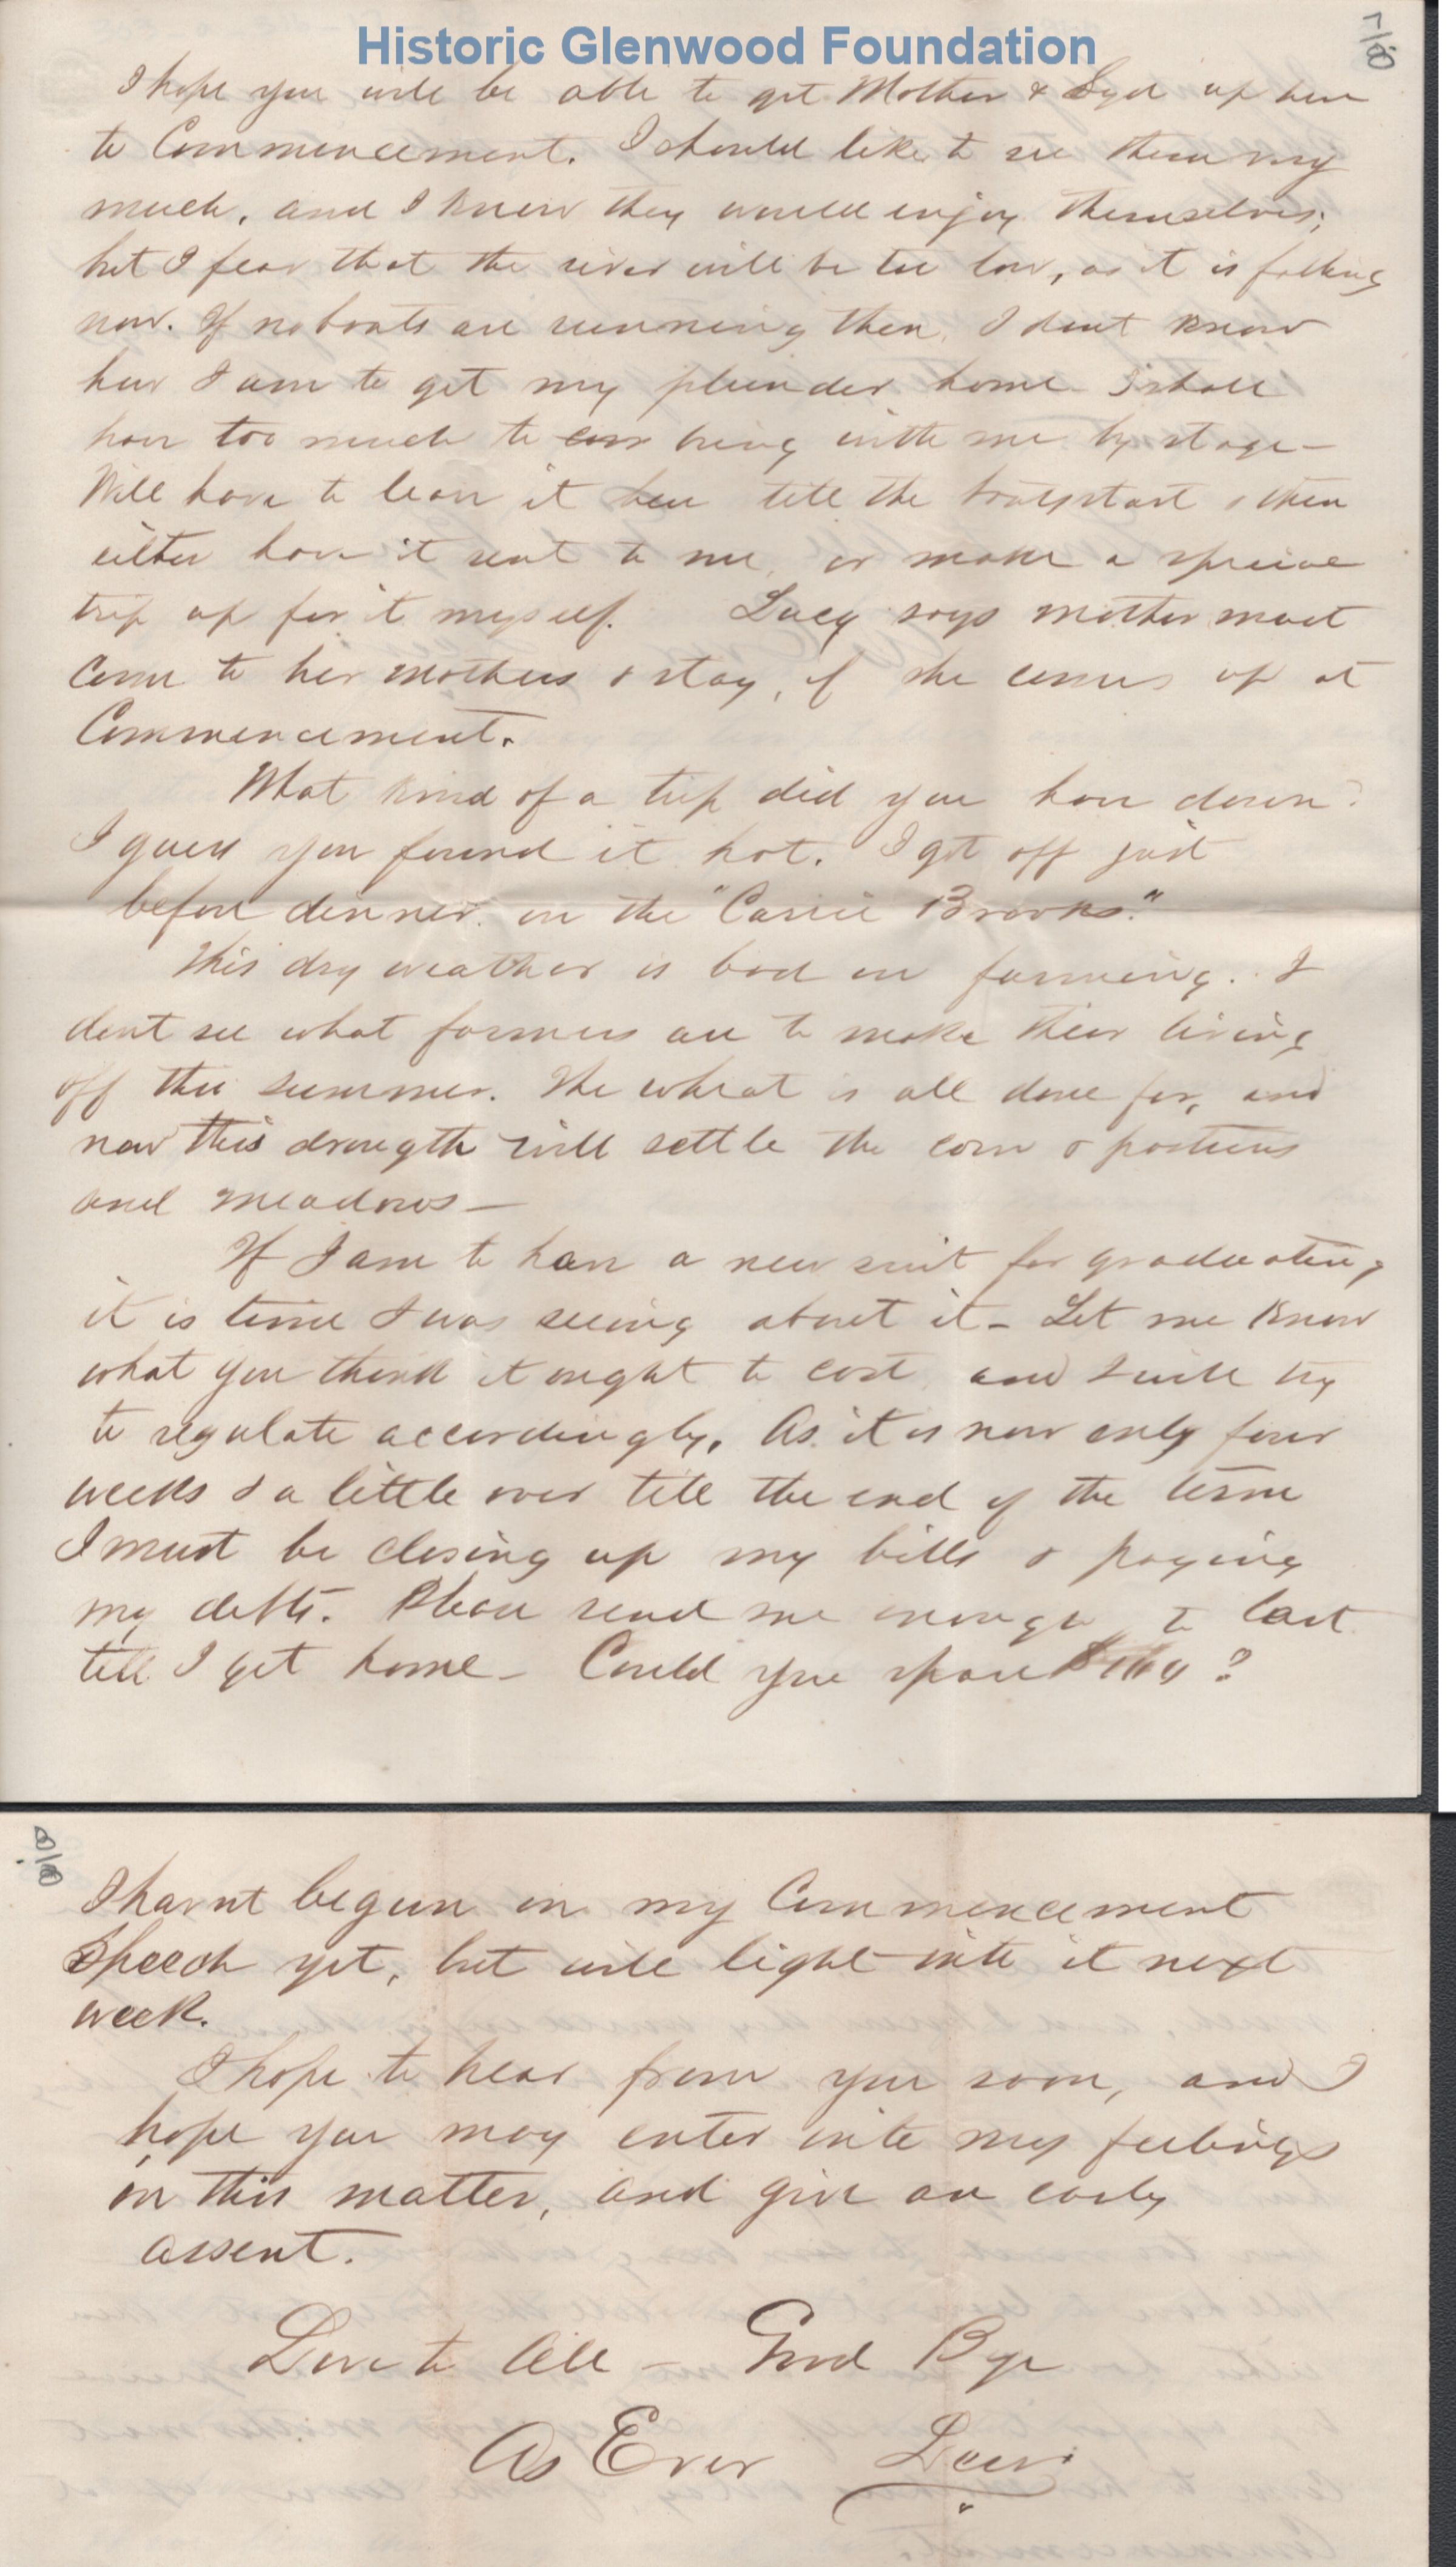 Historic Glenwood Foundation
7/8
I hope you will be able to get Mother & Lyd up here
to Commencement. I should like to see them very
much, and I know they would enjoy themselves;
but I fear that the river will be too low, as it is falling
now. If no boats are running then, I dont know
how I am to get my plunder home. I shall
have too much to bring with me by stage –
Will have to leave it here till the boats start & then
either have it sent to me, or make a special
trip up for it myself. Lucy says mother must
come to her mothers & stay, if she comes up at
Commencement.
What kind of a trip did you have down?
I guess you found it hot. I got off just
before dinner on the "Carrie Brooks."
This dry weather is bad on farming. I
dont see what farmers are to make their living
off this summer. The wheat is all done for, and
now this droughth will settle the corn & pastures
and meadows –
If I am to have a new suit for graduating,
it is time I was seeing about it – Let me know
what you think it ought to cost and I will try
to regulate accordingly. As it is now only four
weeks & a little over till the end of the term
I must be closing up my bills & paying
my debts. Please send me enough to last
till I get home – Could you spare ?
8/8
I havnt begun on my Commencement
Speech yet, but will light into it next
week.
I hope to hear from you soon, and I
hope you may enter into my feelings
in this matter, and give an early
assent.
Love to All – Good Bye
As Ever